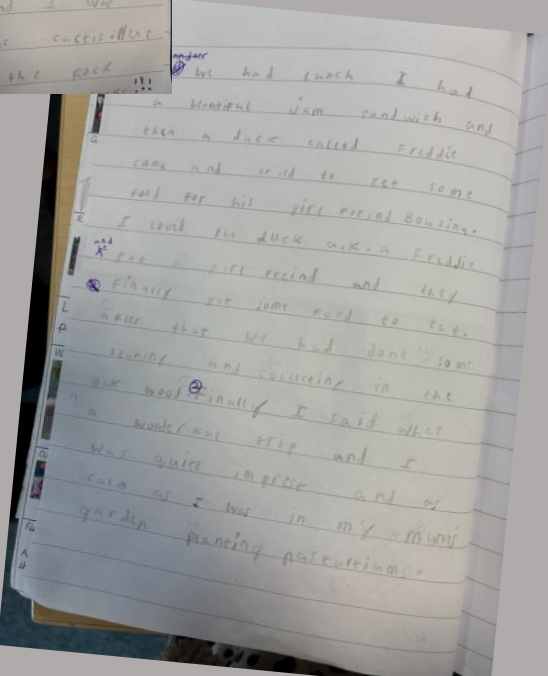 nd I was
the rock !!!
We had lunch I had
a beautiful Jam sandwich and
then a duck called Freddie
came and tried to get some
food for his girl freind Bousing.
I loved the duck a.k.a Freddie
and a girl freind and they
Finally got some food to eat.
after that we had done some
learning and collecting in the
oak wood Finally I said what
a wonderful trip and I
was quite imprese and as
calm as I was in my mums
garden planting pasturtiums.